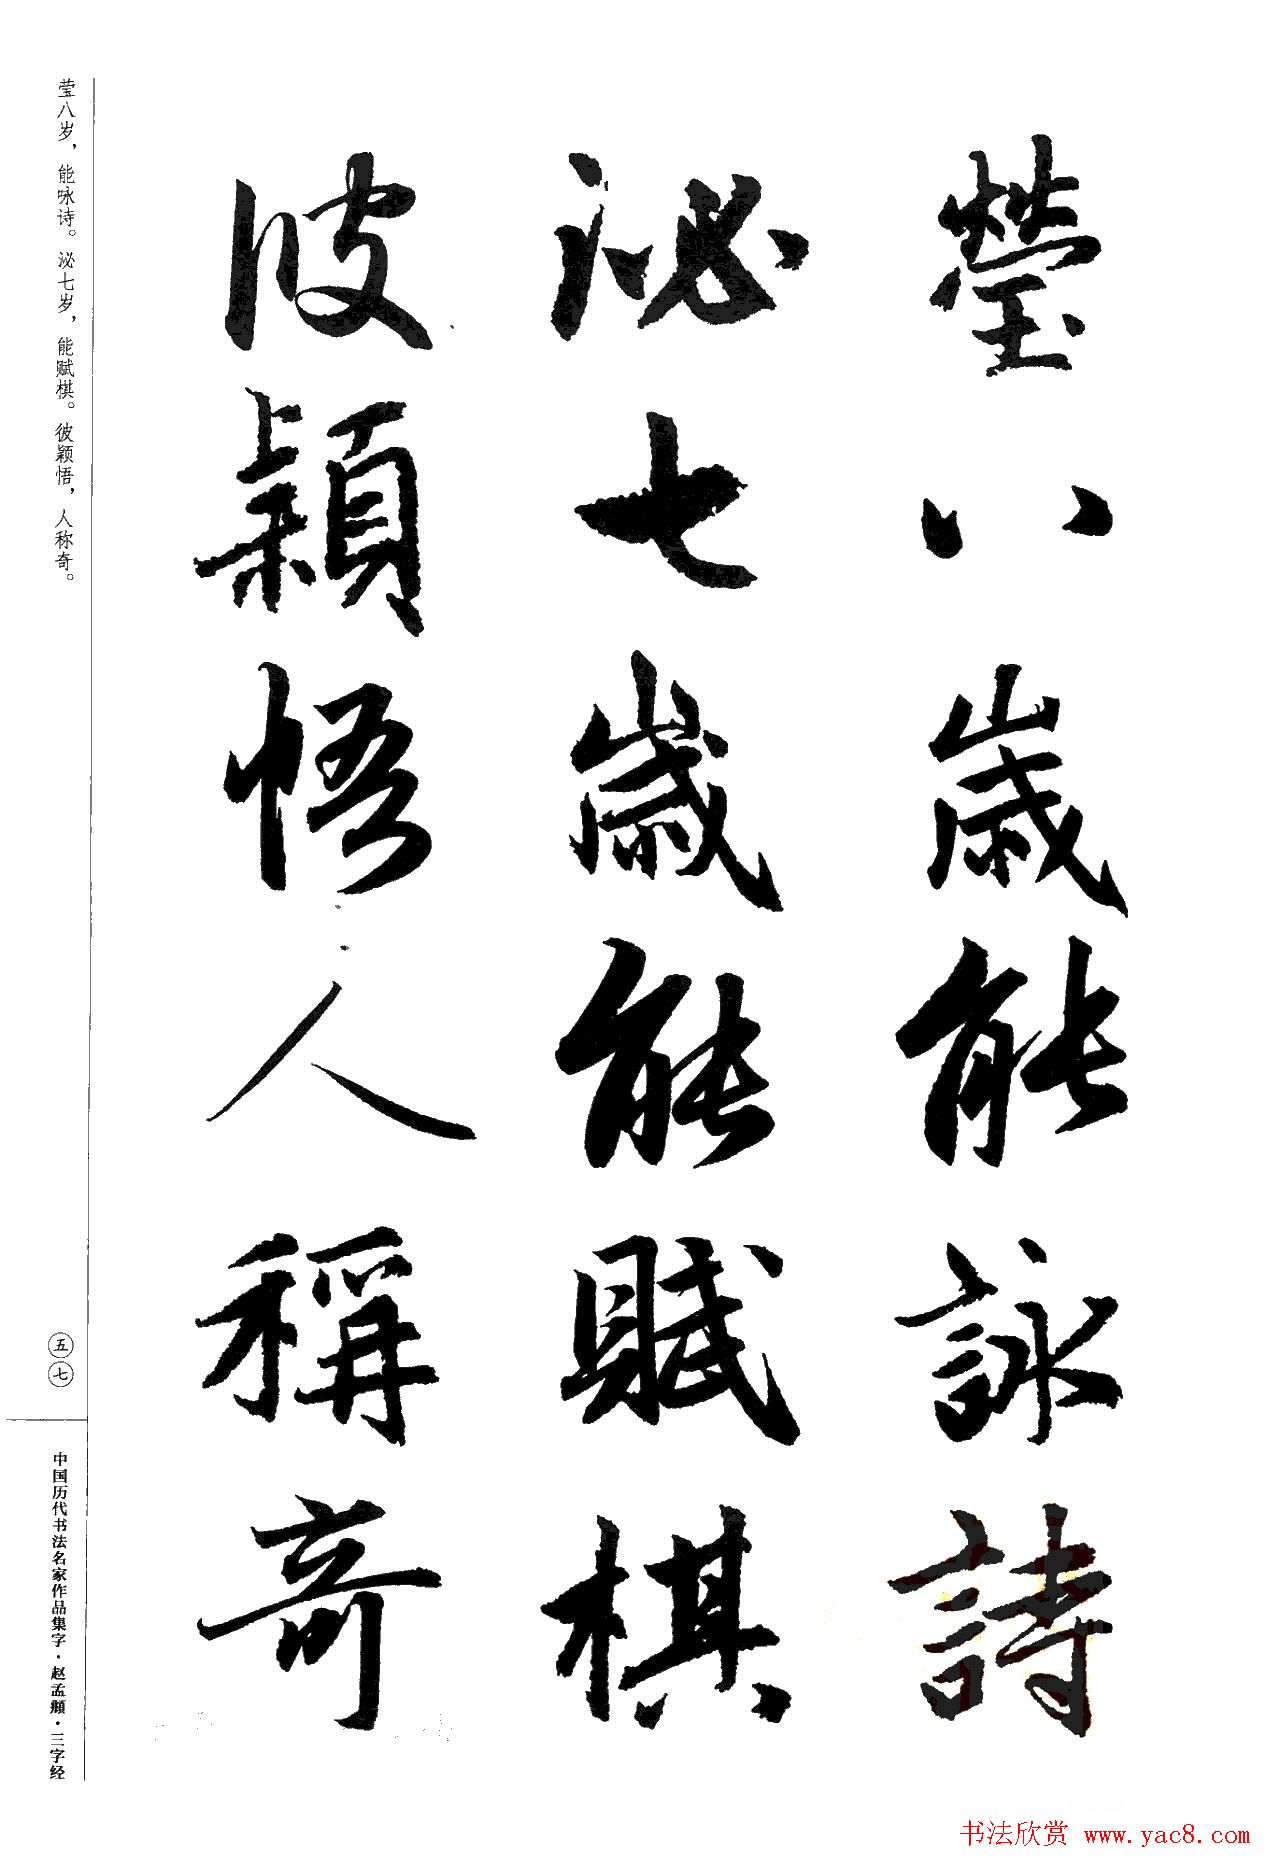 瑩八歲能詠詩
泌七歲能賦棋
彼穎悟人稱奇
莹八岁，能咏诗。泌七岁，能赋棋。彼颖悟，人称奇。
五七
中国历代书法名家作品集字·赵孟頫·三字经
书法欣赏 www.yac8.com